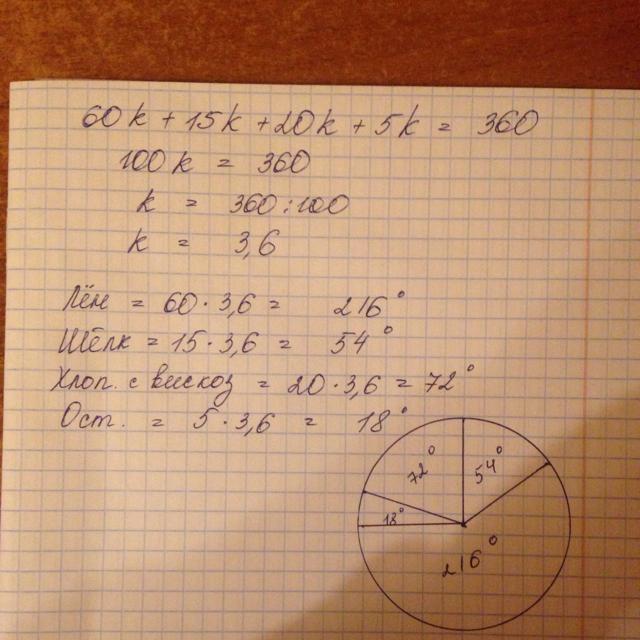 60k + 15k + 20k + 5k = 360
100k = 360
k = 360 : 100
k = 3,6
Лён = 60 · 3,6 = 216°
Шёлк = 15 · 3,6 = 54°
Хлоп. с вискоз = 20 · 3,6 = 72°
Ост. = 5 · 3,6 = 18°
72° 54°
18°
216°